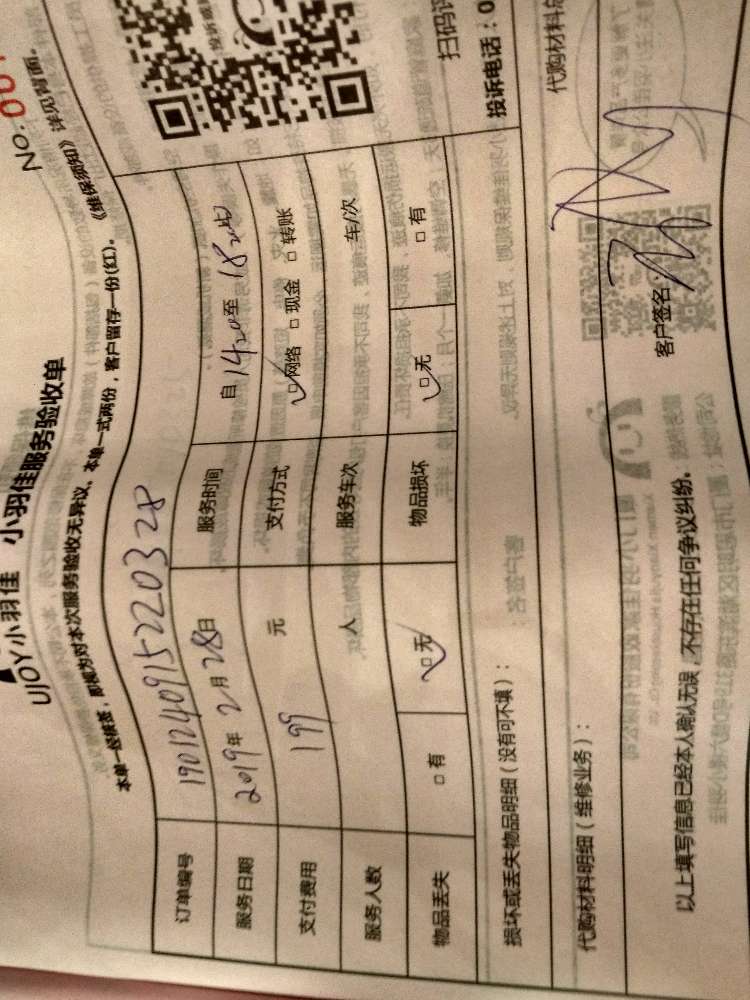 No: 00
UJOY小羽佳 小羽佳服务验收单
本单一经填签，即视为对本次服务验收无异议、本单一式两份，客户留存一份(红)。《维保须知》详见背面。
订单编号 1901240915220328
服务日期 2019年2月28日 服务时间 自1420至1820
支付费用 199元 支付方式 □网络 □现金 □转账
服务人数 人 服务车次 车/次
物品丢失 □有 □无 物品损坏 □无 □有
扫码
投诉电话：0
损坏或丢失物品明细（没有可不填）：
代购材料明细（维修业务）： 代购材料
以上填写信息已经本人确认无误，不存在任何争议纠纷。 客户签名：